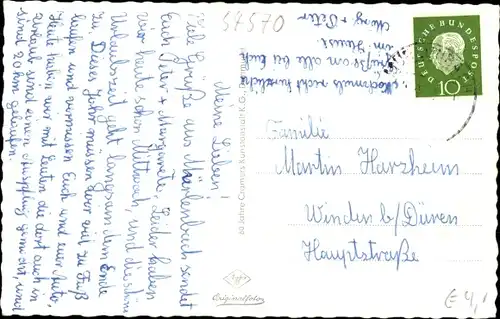 Meine Lieben!
Viele Grüße aus Mürlenbach sendet
Euch Peter + Margarete. Leider haben
wir heute schon Mittwoch, und die schöne
Urlaubszeit geht langsam dem Ende
zu. Dieses Jahr müssen wir viel zu Fuß
laufen und vermissen Euch und euer Auto.
Heute haben wir mit Leuten die dort auch in
Urlaub sind einen Ausflug gemacht, und
sind 20 km gelaufen.
Nochmals recht herzliche
Grüße an alle bei Euch
im Haus
Marg + Peter
57570
60 Jahre Cramers Kunstanstalt K.G.
Agfa
Originalfoto
DEUTSCHE BUNDESPOST
10
Familie
Martin Harzheim
Winden b/Düren
Hauptstraße
€ 4,-